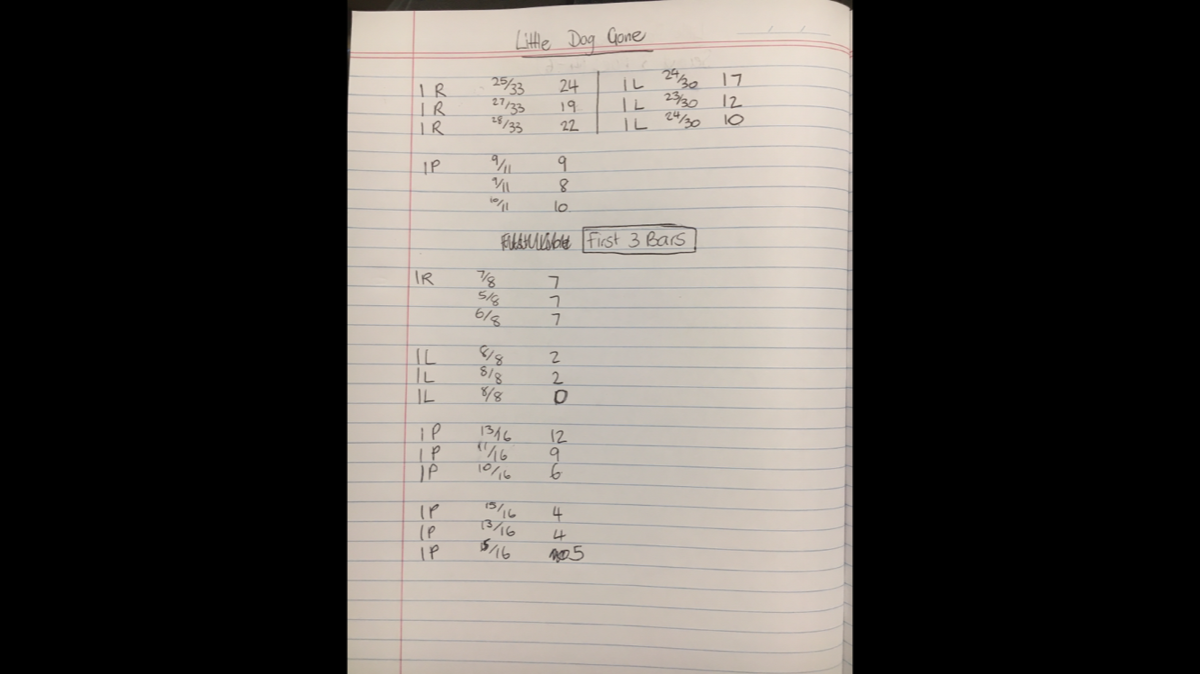 Little Dog Gone
1 R 25/33 24 1 L 24/30 17
1 R 27/33 19 1 L 23/30 12
1 R 28/33 22 1 L 24/30 10
1P 9/11 9
9/11 8
10/11 10
First 3 Bars
1R 7/8 7
5/8 7
6/8 7
1L 8/8 2
1L 8/8 2
1L 8/8 0
1P 13/16 12
1P 11/16 9
1P 10/16 6
1P 15/16 4
1P 13/16 4
1P /16 5